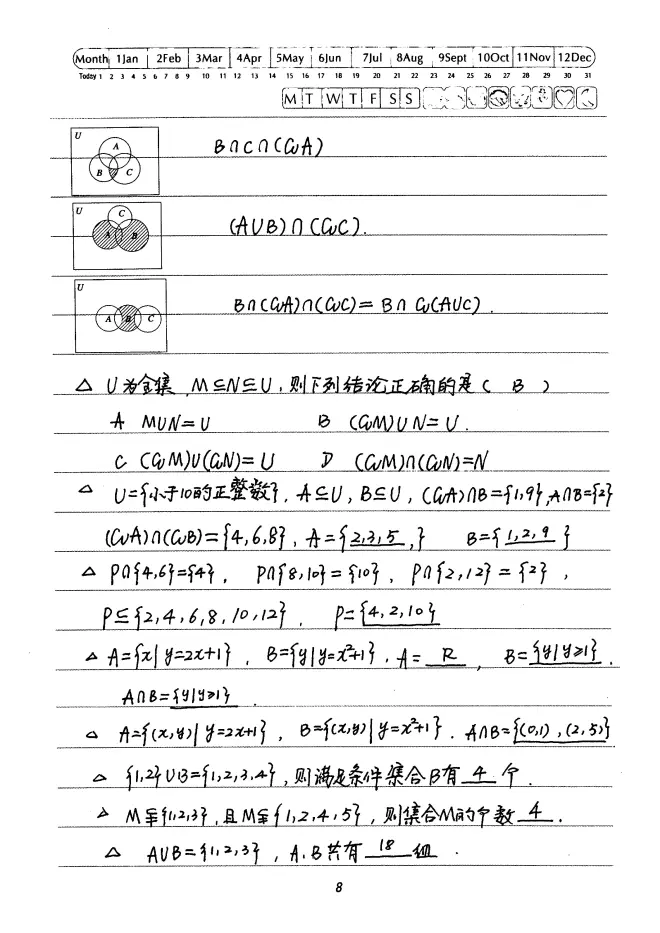 Month 1Jan 2Feb 3Mar 4Apr 5May 6Jun 7Jul 8Aug 9Sept 10Oct 11Nov 12Dec
Today 1 2 3 4 5 6 7 8 9 10 11 12 13 14 15 16 17 18 19 20 21 22 23 24 25 26 27 28 29 30 31
M T W T F S S
U A B C B∩C∩(∁UA)
U C A B (A∪B)∩(∁UC).
U A B C B∩(∁UA)∩(∁UC)= B∩ ∁U(A∪C).
△ U为全集, M⊆N⊆U, 则下列结论正确的是( B )
A M∪N=U B (∁UM)∪N=U.
C (∁UM)∪(∁UN)=U D (∁UM)∩(∁UN)=N
△ U={小于10的正整数}, A⊆U, B⊆U, (∁UA)∩B={1,9}, A∩B={2}
(∁UA)∩(∁UB)={4,6,8}, A={2,3,5,} B={1,2,9}
△ P∩{4,6}={4}, P∩{8,10}={10}, P∩{2,12}={2},
P⊆{2,4,6,8,10,12}. P={4,2,10}
△ A={x|y=2x+1}, B={y|y=x²+1}, A= R , B={y|y≥1}.
A∩B={y|y≥1}.
△ A={(x,y)|y=2x+1}, B={(x,y)|y=x²+1}. A∩B={(0,1),(2,5)}
△ {1,2}∪B={1,2,3,4}, 则满足条件集合B有 4 个.
△ M⫋{1,2,3}, 且M⫋{1,2,4,5}, 则集合M的个数 4 .
△ A∪B={1,2,3}, A.B共有 18 组.
8